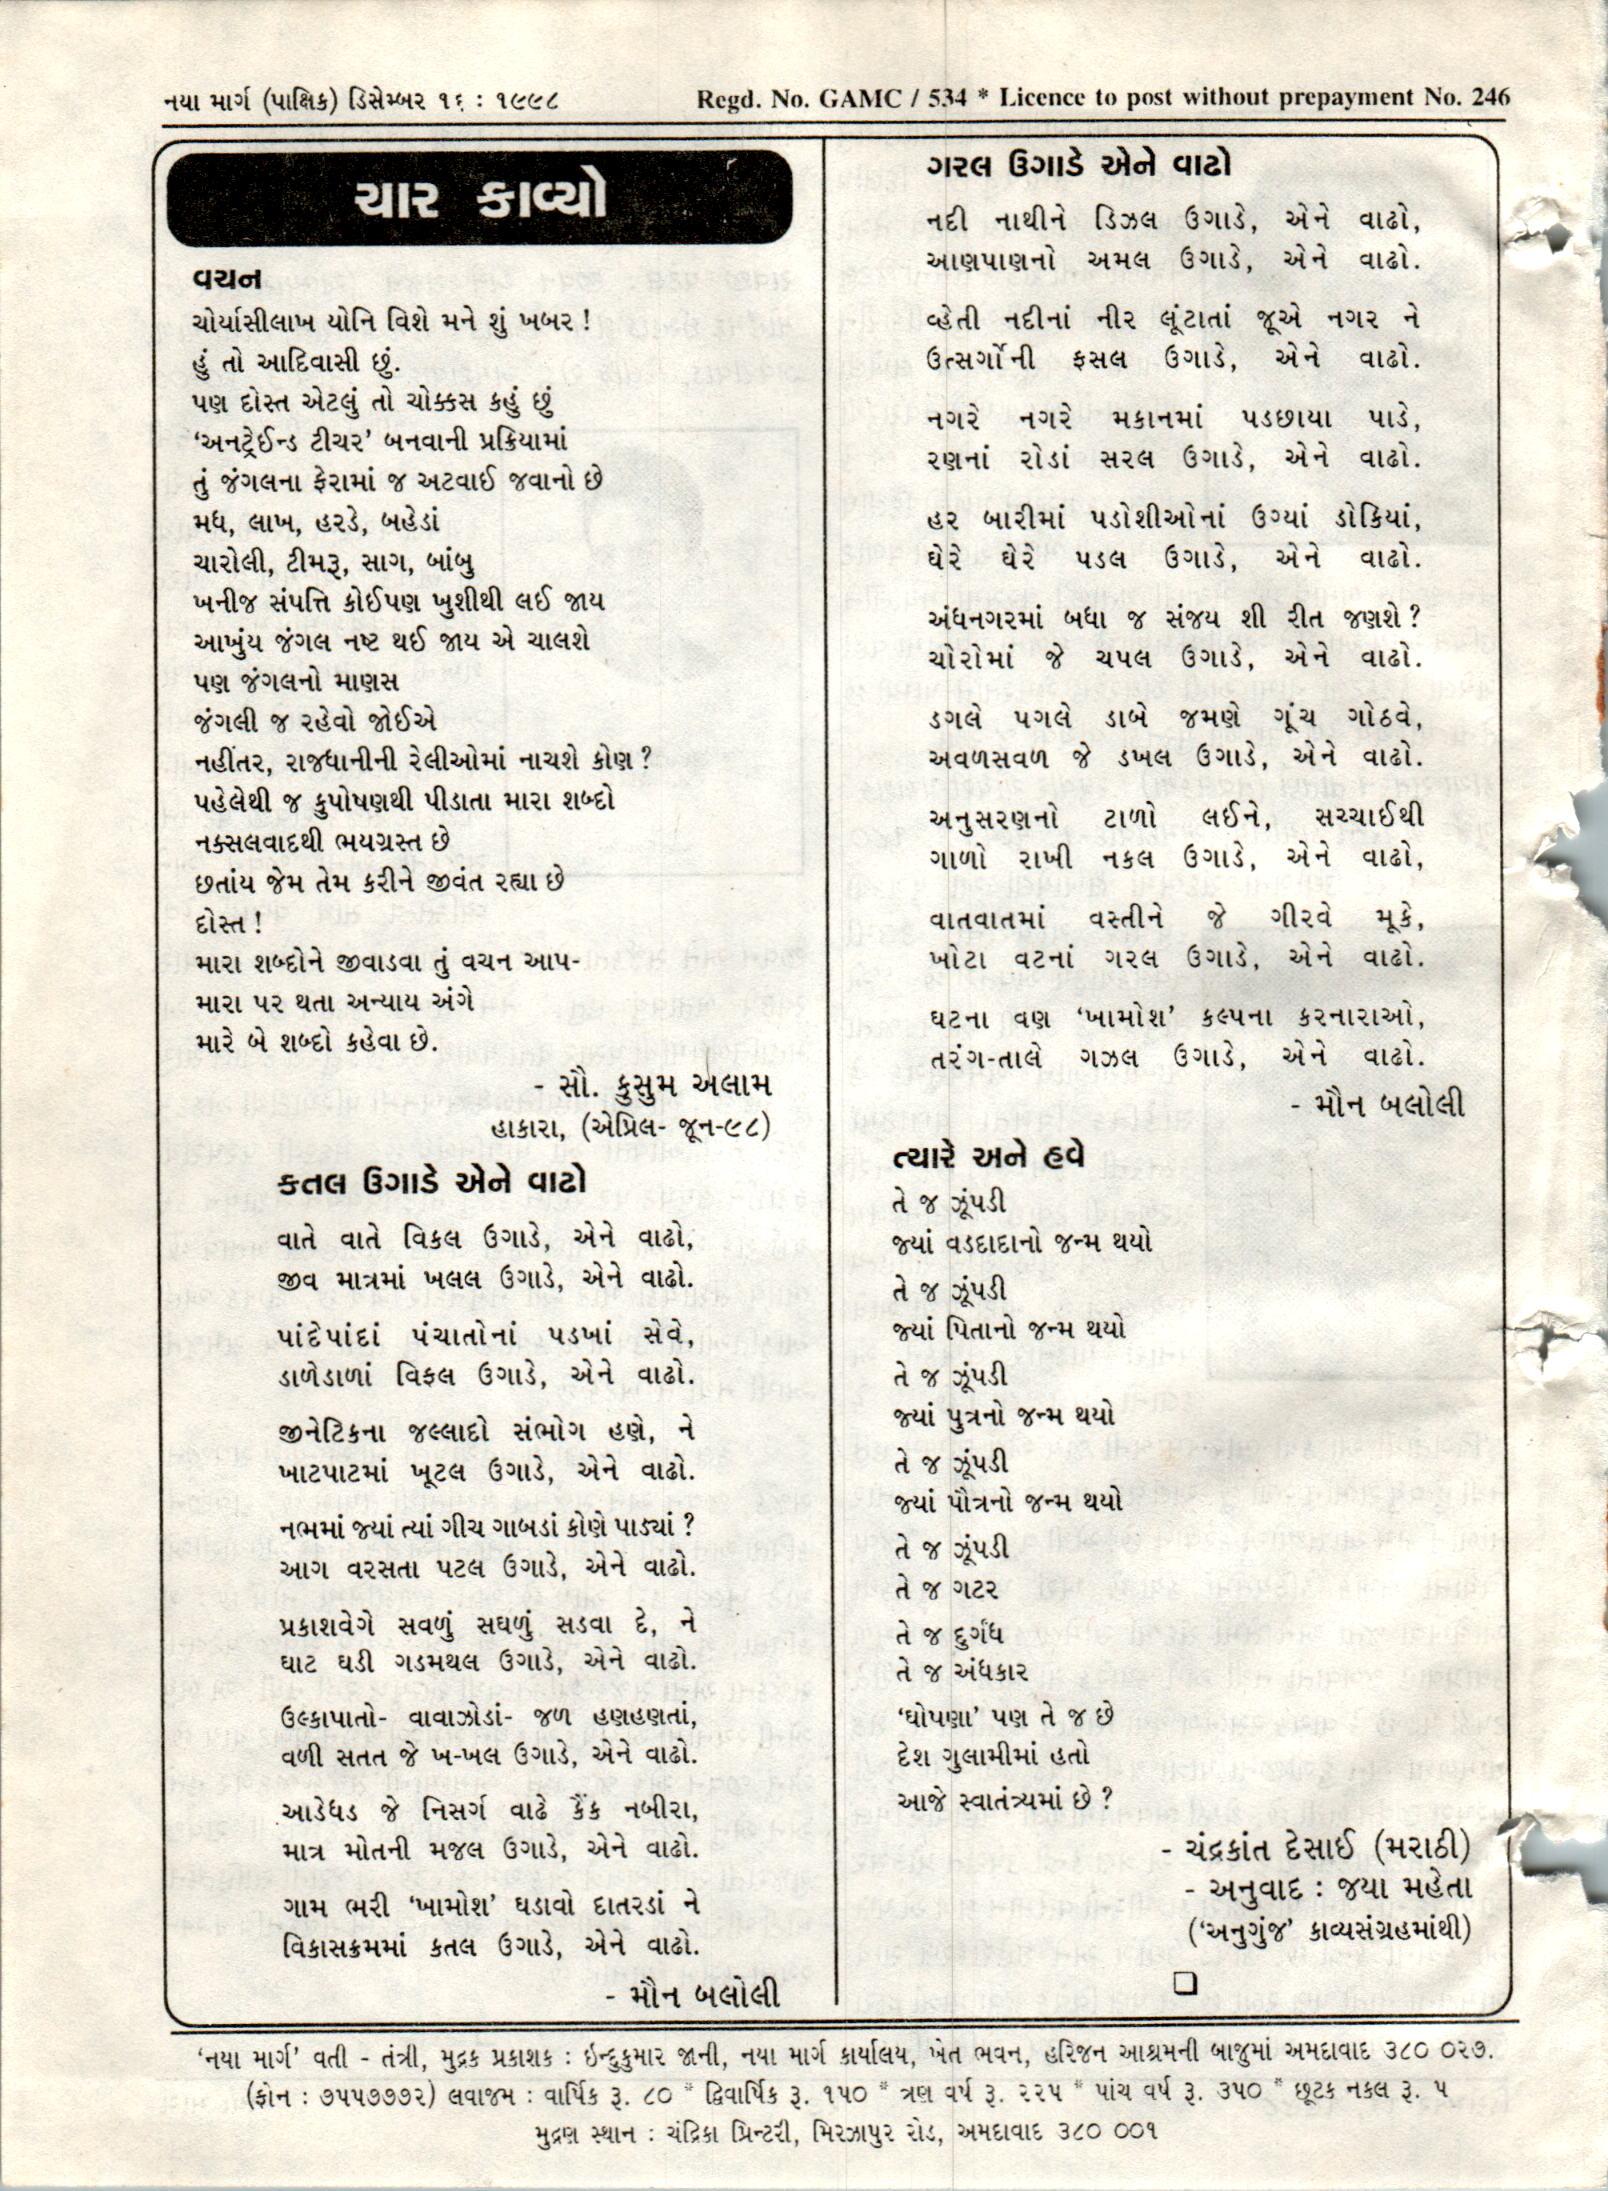 નયા માર્ગ (પાક્ષિક) ડિસેમ્બર ૧૬ : ૧૯૯૮ Regd. No. GAMC / 534 * Licence to post without prepayment No. 246
ચાર કાવ્યો
વચન
ચોર્યાસીલાખ યોનિ વિશે મને શું ખબર !
હું તો આદિવાસી છું.
પણ દોસ્ત એટલું તો ચોક્કસ કહું છું
‘અનટ્રેઈન્ડ ટીચર’ બનવાની પ્રક્રિયામાં
તું જંગલના ફેરામાં જ અટવાઈ જવાનો છે
મધ, લાખ, હરડે, બહેડાં
ચારોલી, ટીમરૂ, સાગ, બાંબુ
ખનીજ સંપત્તિ કોઈપણ ખુશીથી લઈ જાય
આખુંય જંગલ નષ્ટ થઈ જાય એ ચાલશે
પણ જંગલનો માણસ
જંગલી જ રહેવો જોઈએ
નહીંતર, રાજધાનીની રેલીઓમાં નાચશે કોણ ?
પહેલેથી જ કુપોષણથી પીડાતા મારા શબ્દો
નક્સલવાદથી ભયગ્રસ્ત છે
છતાંય જેમ તેમ કરીને જીવંત રહ્યા છે
દોસ્ત !
મારા શબ્દોને જીવાડવા તું વચન આપ-
મારા પર થતા અન્યાય અંગે
મારે બે શબ્દો કહેવા છે.
- સૌ. કુસુમ અલામ
હાકારા, (એપ્રિલ- જૂન-૯૮)
કતલ ઉગાડે એને વાઢો
વાતે વાતે વિકલ ઉગાડે, એને વાઢો,
જીવ માત્રમાં ખલલ ઉગાડે, એને વાઢો.
પાંદેપાંદાં પંચાતોનાં પડખાં સેવે,
ડાળેડાળાં વિફલ ઉગાડે, એને વાઢો.
જીનેટિકના જલ્લાદો સંભોગ હણે, ને
ખાટપાટમાં ખૂટલ ઉગાડે, એને વાઢો.
નભમાં જ્યાં ત્યાં ગીચ ગાબડાં કોણે પાડ્યાં ?
આગ વરસતા પટલ ઉગાડે, એને વાઢો.
પ્રકાશવેગે સવળું સઘળું સડવા દે, ને
ઘાટ ઘડી ગડમથલ ઉગાડે, એને વાઢો.
ઉલ્કાપાતો- વાવાઝોડાં- જળ હણહણતાં,
વળી સતત જે ખ-ખલ ઉગાડે, એને વાઢો.
આડેધડ જે નિસર્ગ વાઢે કૈંક નબીરા,
માત્ર મોતની મજલ ઉગાડે, એને વાઢો.
ગામ ભરી ‘ખામોશ’ ઘડાવો દાતરડાં ને
વિકાસક્રમમાં કતલ ઉગાડે, એને વાઢો.
- મૌન બલોલી
ગરલ ઉગાડે એને વાઢો
નદી નાથીને ડિઝલ ઉગાડે, એને વાઢો,
આણપાણનો અમલ ઉગાડે, એને વાઢો.
વ્હેતી નદીનાં નીર લૂંટાતાં જૂએ નગર ને
ઉત્સર્ગોની ફસલ ઉગાડે, એને વાઢો.
નગરે નગરે મકાનમાં પડછાયા પાડે,
રણનાં રોડાં સરલ ઉગાડે, એને વાઢો.
હર બારીમાં પડોશીઓનાં ઉગ્યાં ડોકિયાં,
ઘેરે ઘેરે પડલ ઉગાડે, એને વાઢો.
અંધનગરમાં બધા જ સંજય શી રીત જણશે ?
ચોરોમાં જે ચપલ ઉગાડે, એને વાઢો.
ડગલે પગલે ડાબે જમણે ગૂંચ ગોઠવે,
અવળસવળ જે ડખલ ઉગાડે, એને વાઢો.
અનુસરણનો ટાળો લઈને, સચ્ચાઈથી
ગાળો રાખી નકલ ઉગાડે, એને વાઢો,
વાતવાતમાં વસ્તીને જે ગીરવે મૂકે,
ખોટા વટનાં ગરલ ઉગાડે, એને વાઢો.
ઘટના વણ ‘ખામોશ’ કલ્પના કરનારાઓ,
તરંગ-તાલે ગઝલ ઉગાડે, એને વાઢો.
- મૌન બલોલી
ત્યારે અને હવે
તે જ ઝૂંપડી
જ્યાં વડદાદાનો જન્મ થયો
તે જ ઝૂંપડી
જ્યાં પિતાનો જન્મ થયો
તે જ ઝૂંપડી
જ્યાં પુત્રનો જન્મ થયો
તે જ ઝૂંપડી
જ્યાં પૌત્રનો જન્મ થયો
તે જ ઝૂંપડી
તે જ ગટર
તે જ દુર્ગંધ
તે જ અંધકાર
‘ઘોષણા’ પણ તે જ છે
દેશ ગુલામીમાં હતો
આજે સ્વાતંત્ર્યમાં છે ?
- ચંદ્રકાંત દેસાઈ (મરાઠી)
- અનુવાદ : જયા મહેતા
(‘અનુગુંજ’ કાવ્યસંગ્રહમાંથી)
‘નયા માર્ગ’ વતી - તંત્રી, મુદ્રક પ્રકાશક : ઇન્દુકુમાર જાની, નયા માર્ગ કાર્યાલય, ખેત ભવન, હરિજન આશ્રમની બાજુમાં અમદાવાદ ૩૮૦ ૦૨૭.
(ફોન : ૭૫૫૭૭૭૨) લવાજમ : વાર્ષિક રૂ. ૮૦ * દ્વિવાર્ષિક રૂ. ૧૫૦ * ત્રણ વર્ષ રૂ. ૨૨૫ * પાંચ વર્ષ રૂ. ૩૫૦ * છૂટક નકલ રૂ. ૫
મુદ્રણ સ્થાન : ચંદ્રિકા પ્રિન્ટરી, મિરઝાપુર રોડ, અમદાવાદ ૩૮૦ ૦૦૧